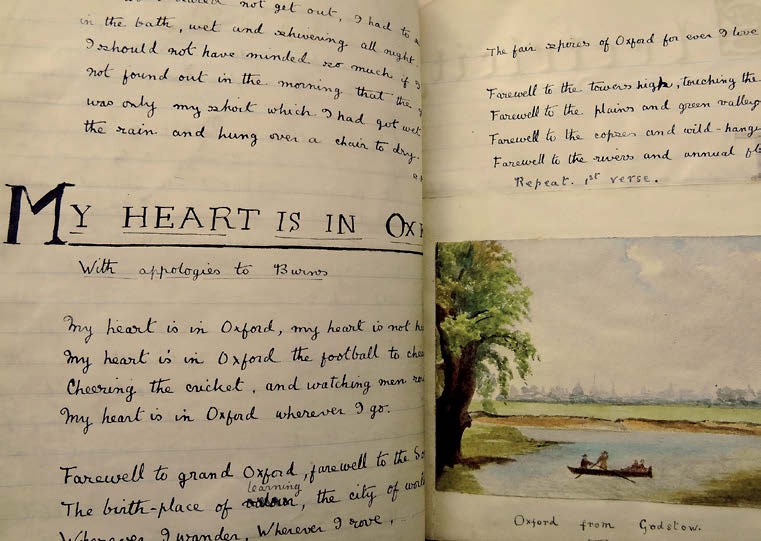 not get out, I had to
in the bath, wet and shivering all night.
I should not have minded so much if I
not found out in the morning that the
was only my shirt which I had got wet
the rain and hung over a chair to dry.
MY HEART IS IN OX
With appologies to Burns
My heart is in Oxford, my heart is not
My heart is in Oxford the football to
Cheering the cricket, and watching men
My heart is in Oxford wherever I go.
Farewell to grand Oxford, farewell to the
learning
The birth-place of , the city of
Wherever I wander, Wherever I rove,
The fair spires of Oxford for ever I love
Farewell to the towers high, touching the
Farewell to the plains and green valleys
Farewell to the copses and wild-hang
Farewell to the rivers and annual fl
Repeat. 1st verse.
Oxford from Godstow.